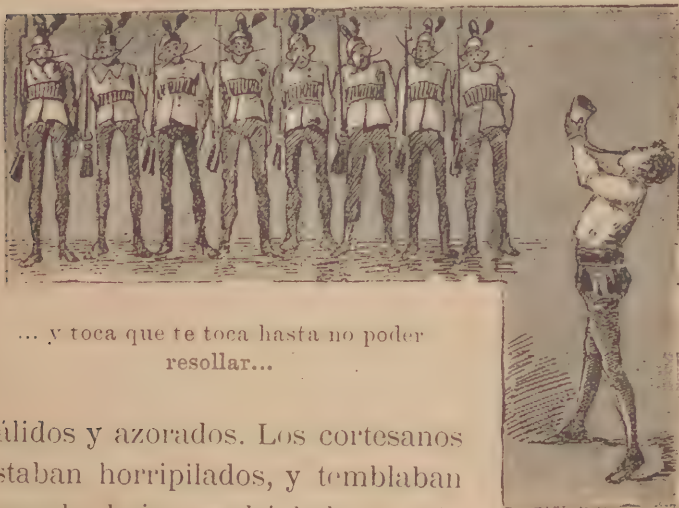 ... y toca que te toca hasta no poder
resollar...
álidos y azorados. Los cortesanos
staban horripilados, y temblaban